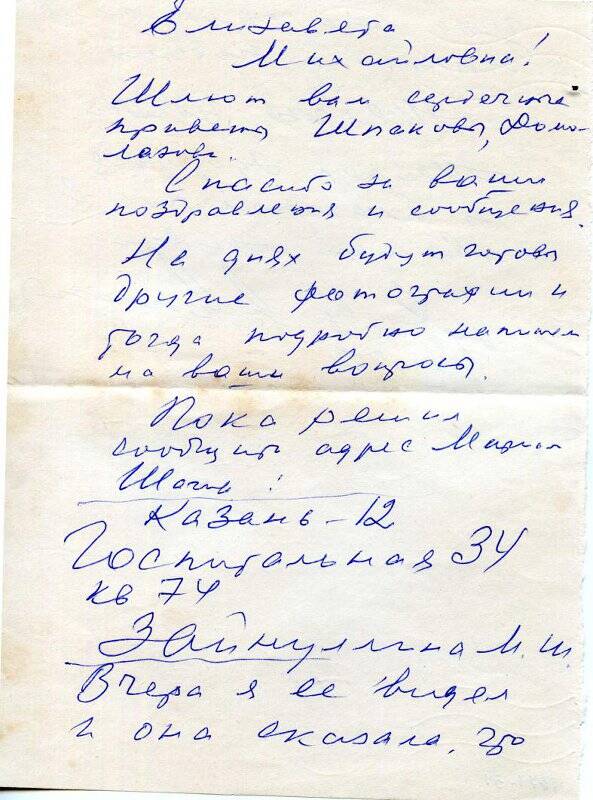 Елизавета
Михайловна!
Шлют вам сердечные
приветы Шпаковы, Домо-
лазовы.
Спасибо за ваши
поздравления и сообщения.
На днях будут готовы
другие фотографии и
тогда подробно напишем
на ваши вопросы.
Пока решил
сообщить адрес Марии
:
Казань-12
Госпитальная 34
кв 74
Зайнуллина М. Ш.
Вчера я ее видел
и она сказала, что